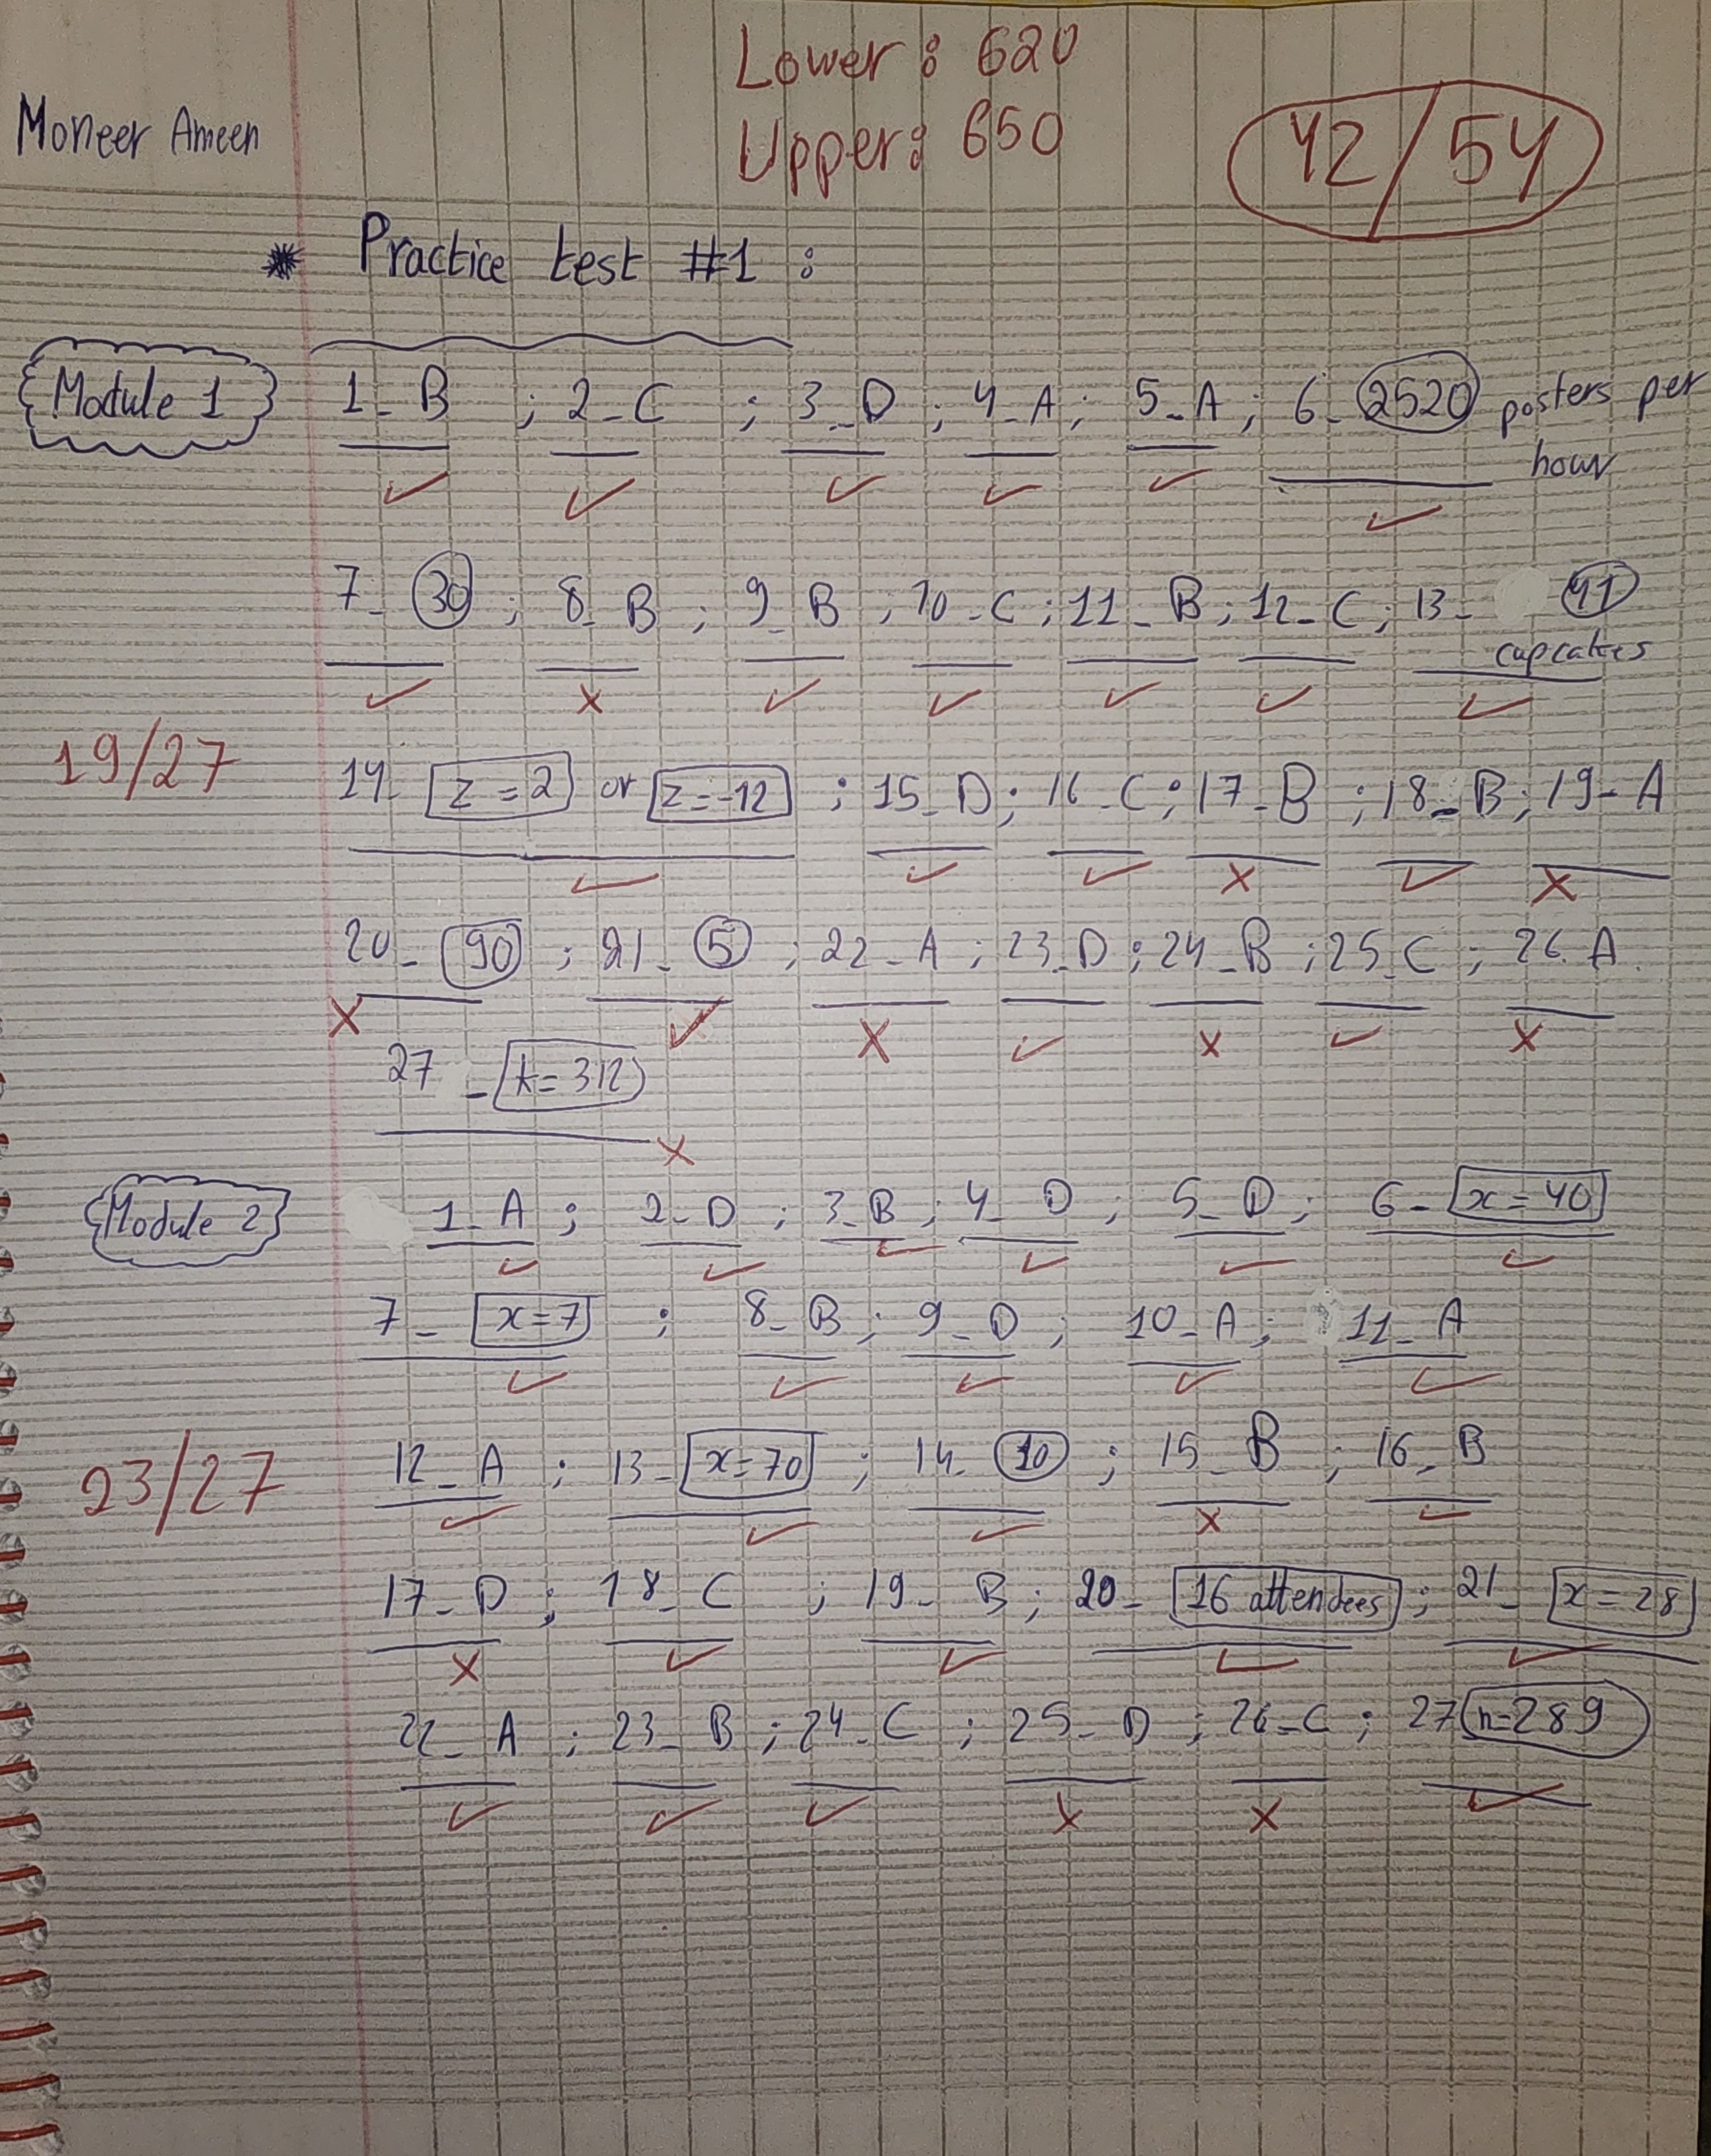 Lower: 620
Moneer Ameen
Upper: 650
42/54
* Practice test #1 :
Module 1
1_ B ; 2_ C ; 3_ D ; 4_ A ; 5_ A ; 6_ 2520 posters per
hour
7_ 30 ; 8_ B ; 9_ B ; 10_ C ; 11_ B ; 12_ C ; 13_ 41
cupcakes
19/27
14_ z = 2 or z = -12 ; 15_ D ; 16_ C ; 17_ B ; 18_ B ; 19_ A
20_ 90 ; 21_ 5 ; 22_ A ; 23_ D ; 24_ B ; 25_ C ; 26_ A
27_ k = 312
Module 2
1_ A ; 2_ D ; 3_ B ; 4_ D ; 5_ D ; 6_ x = 40
7_ x = 7 ; 8_ B ; 9_ D ; 10_ A ; 11_ A
23/27
12_ A ; 13_ x = 70 ; 14_ 10 ; 15_ B ; 16_ B
17_ D ; 18_ C ; 19_ B ; 20_ 16 attendees ; 21_ x = 28
22_ A ; 23_ B ; 24_ C ; 25_ D ; 26_ C ; 27 n = 289